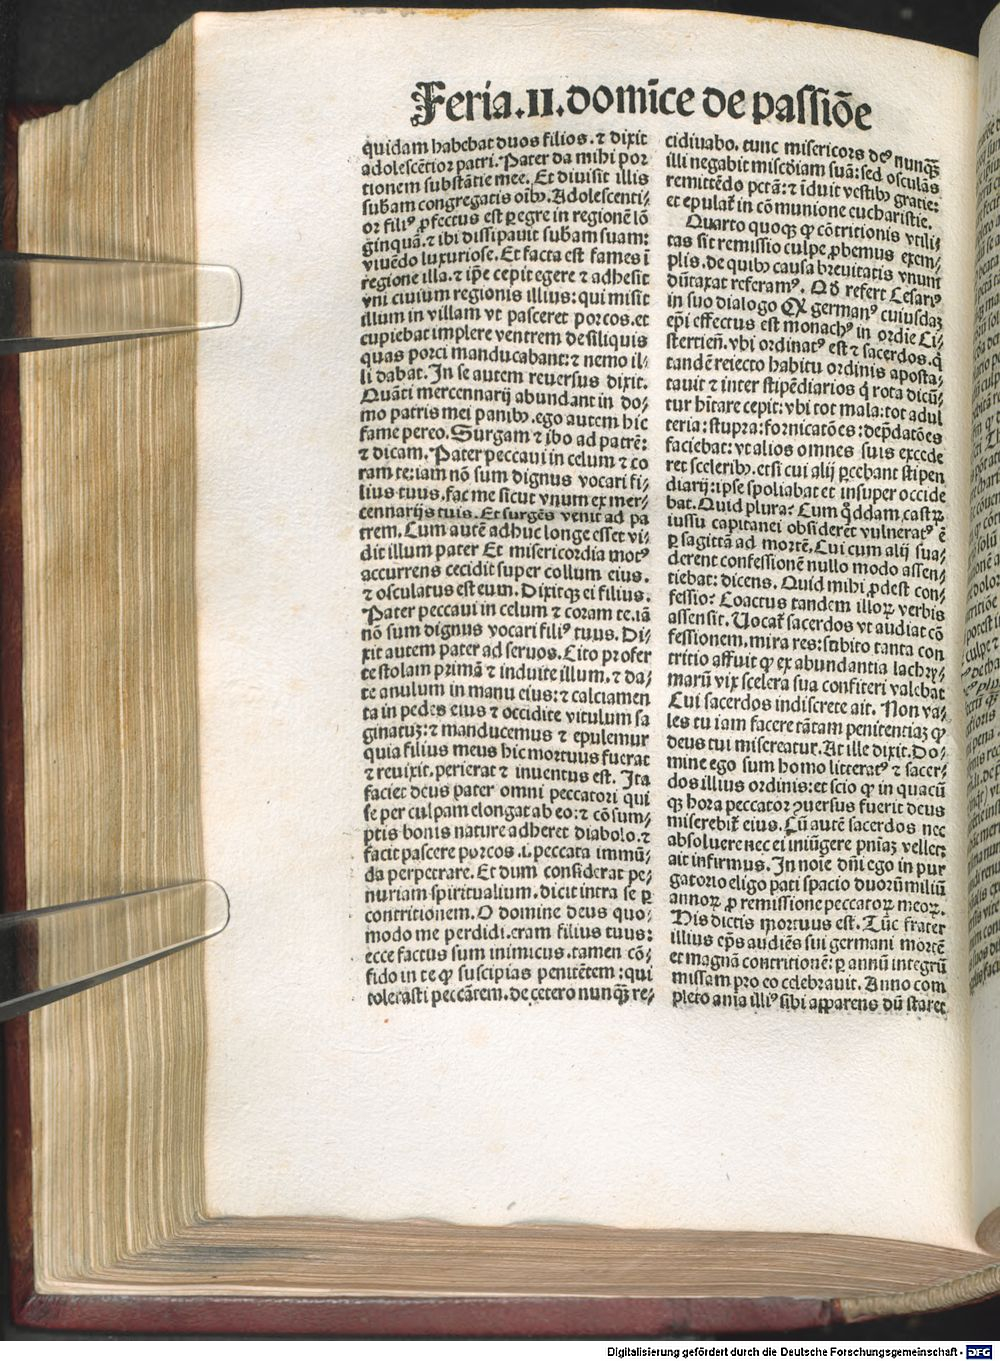 Feria.II.domīce de passiōe
quidam habebat duos filios. ⁊ dixit
adolescētior patri. Pater da mihi por
tionem substātie mee. Et diuisit illis
subām congregatis oībꝫ. Adolescenti⸗
or filiꝰ ꝓfectus est peregre in regionē lō
ginquā. ⁊ ibi dissipauit subām suam:
viuēdo luxuriose. Et facta est fames ī
regione illa. ⁊ ip̄e cepit egere ⁊ adhesit
vni ciuium regionis illius: qui misit
illum in villam vt pasceret porcos. et
cupiebat implere ventrem de siliquis
quas porci manducabant: ⁊ nemo il⸗
li dabat. In se autem reuersus dixit.
Quāti mercennarij abundant in do⸗
mo patris mei panibꝫ. ego autem hic
fame pereo. Surgam ⁊ ibo ad patrē:
⁊ dicam. Pater peccaui in celum ⁊ co
ram te: iam nō sum dignus vocari fi⸗
lius tuus. fac me sicut vnum ex mer⸗
cennarijs tuis. Et surgēs venit ad pa
trem. Cum autē adhuc longe esset vi⸗
dit illum pater Et misericordia motꝰ
accurrens cecidit super collum eius.
⁊ osculatus est eum. Dixitqꝫ ei filius.
Pater peccaui in celum ⁊ coram te. iā
nō sum dignus vocari filiꝰ tuus. Di⸗
xit autem pater ad seruos. Cito profer
te stolam primā ⁊ induite illum. ⁊ da⸗
te anulum in manu eius: ⁊ calciamen
ta in pedes eius ⁊ occidite vitulum sa
ginatuꝫ: ⁊ manducemus ⁊ epulemur
quia filius meus hic mortuus fuerat
⁊ reuixit. perierat ⁊ inuentus est. Ita
faciet deus pater omni peccatori qui
se per culpam elongat ab eo: ⁊ cōsum⸗
ptis bonis nature adheret diabolo. ⁊
facit pascere porcos. i. peccata immū⸗
da perpetrare. Et dum considerat pe⸗
nuriam spiritualium. dicit intra se ꝑ
contritionem. O domine deus quo⸗
modo me perdidi. eram filius tuus:
ecce factus sum inimicus. tamen cō⸗
fido in te ꝙ suscipias penitētem: qui
tolerasti peccātem. de cetero nunqꝫ̄ re⸗
cidiuabo. tunc misericors deꝰ nunqꝫ̄
illi negabit misc̄diam suā: sed osculās
remittēdo pctā: ⁊ īduit vestibꝫ gratie:
et epulat̄ in cōmunione eucharistie.
Quarto quoqꝫ ꝙ cōtritionis vtili⸗
tas sit remissio culpe ꝓbemus exem⸗
plis. de quibꝫ causa breuitatis vnum
dūtaxat referamꝰ. Qd̄ refert Cesariꝰ
in suo dialogo Qꝙ germanꝰ cuiusdaꝫ
ep̄i effectus est monachꝰ in ordīe Ci⸗
sterciēn. vbi ordinatꝰ est ⁊ sacerdos. q̇
tandē reiecto habitu ordinis aposta⸗
tauit ⁊ inter stipēdiarios q̇ rota dicū⸗
tur hītare cepit: vbi tot mala: tot adul
teria: stupra: fornicatōes: dep̄datōes
faciebat: vt alios omnes suis excede
ret sceleribꝫ. et si cui alij ꝑcebant stipen
diarij: ipse spoliabat et insuper occide
bat. Quid plura? Cum q̇ddam castꝝ
iussu capitanei obsideret vulneratꝰ ē
ꝑ sagittā ad mortē. Cui cum alij sua⸗
derent confessionē nullo modo assen⸗
tiebat: dicens. Quid mihi ꝓdest con⸗
fessio? Coactus tandem illoꝝ verbis
assensit. Uocat̄ sacerdos vt audiat cō
fessionem. mira res: subito tanta con
tritio affuit ꝙ ex abundantia lachry⸗
marū vix scelera sua confiteri valebat
Cui sacerdos indiscrete ait. Non va⸗
les tu iam facere tātam penitentiaꝫ ꝙ
deus tui misereatur. At ille dixit. Do⸗
mine ego sum homo litteratꝰ ⁊ sacer⸗
dos illius ordinis: et scio ꝙ in quacū
qꝫ hora peccator ꝯuersus fuerit deus
miserebit̄ eius. Cū autē sacerdos nec
absoluere nec ei iniūgere pn̄iaꝫ vellet:
ait infirmus. In noīe dn̄i ego in pur
gatorio eligo pati spacio duorū miliū
annoꝝ ꝓ remissione peccatoꝝ meoꝝ.
His dictis mortuus est. Tūc frater
illius ep̄s audiēs sui germani mortē
et magnā contritionē: ꝑ annū integrū
missam pro eo celebrauit. Anno com
pleto anīa illiꝰ sibi apparens dū staret
Digitalisierung gefördert durch die Deutsche Forschungsgemeinschaft - DFG